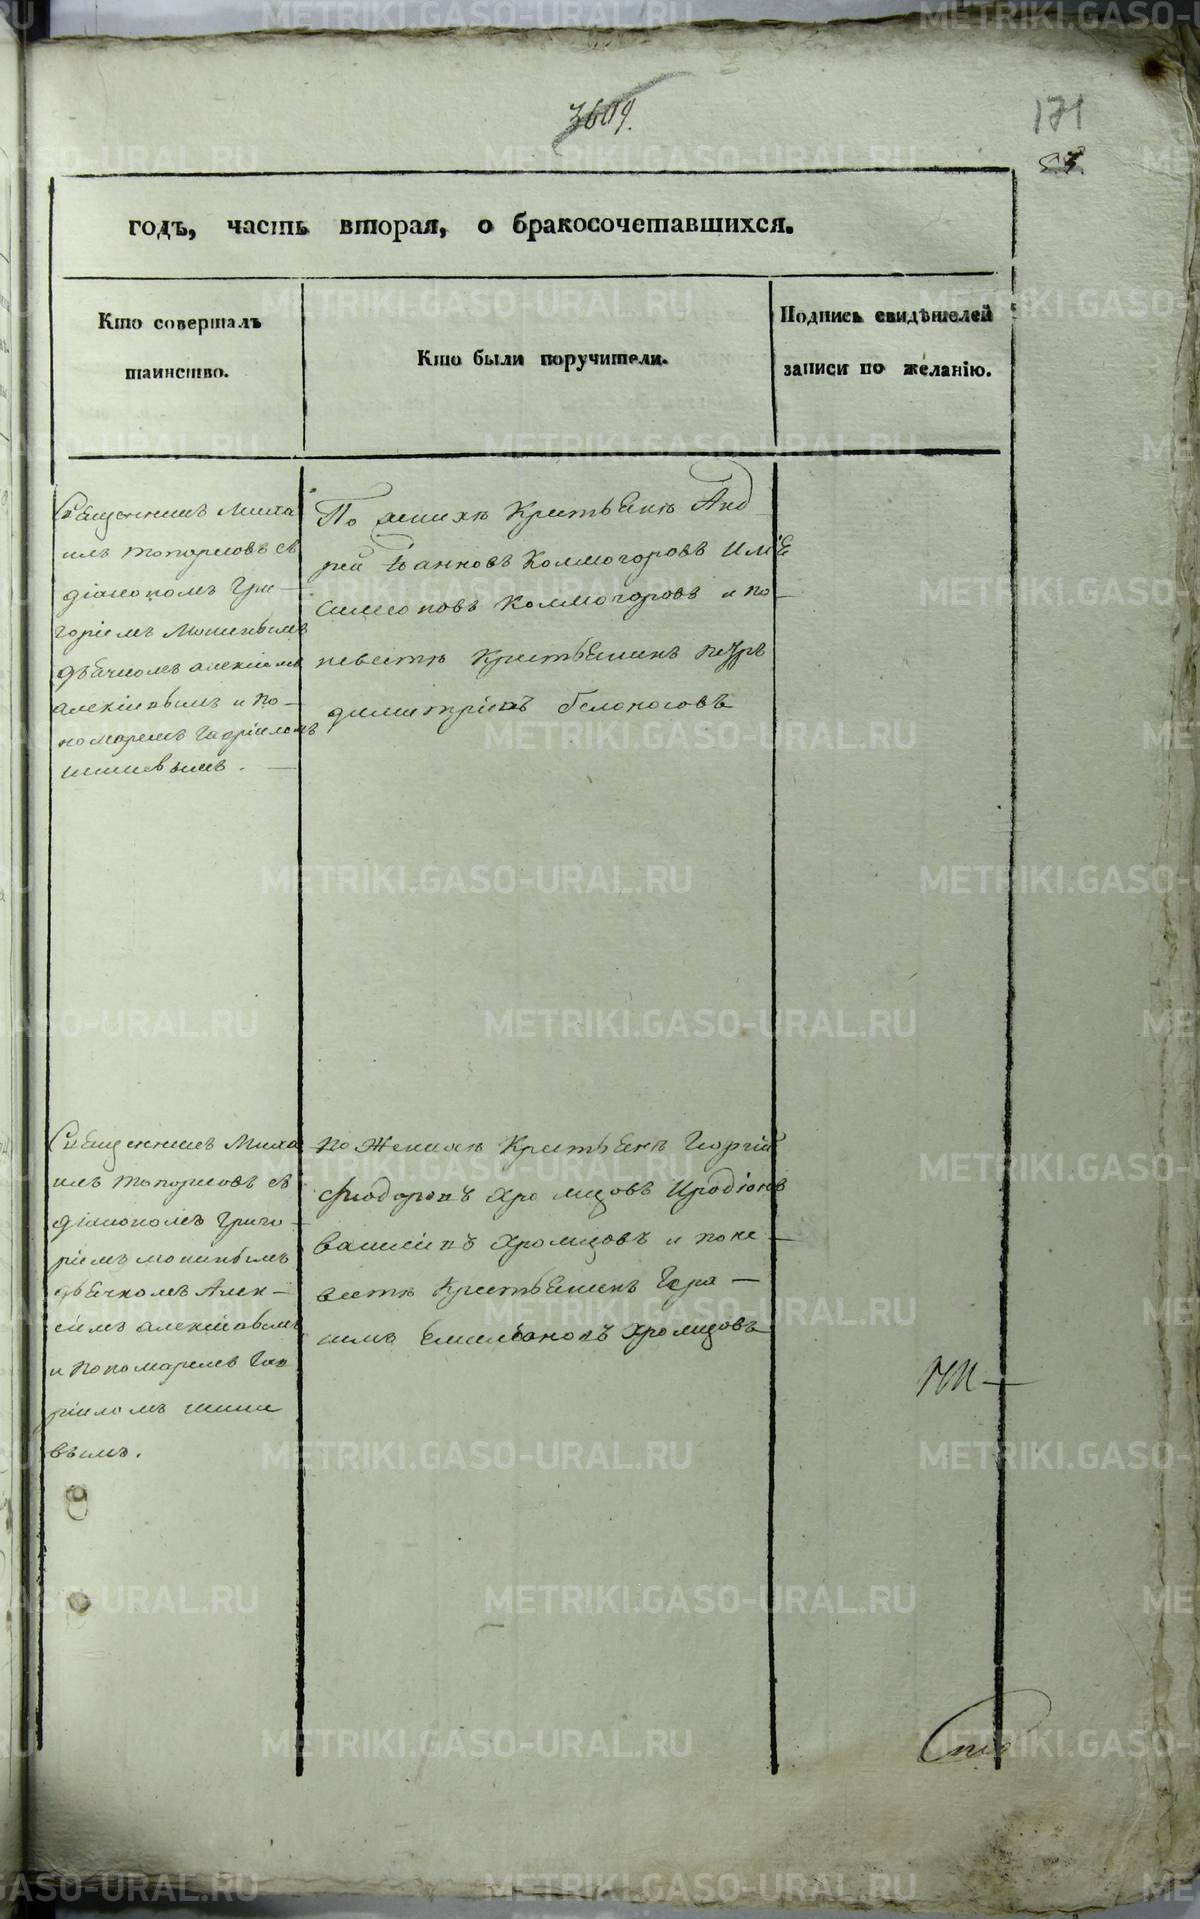 3609.
171
годъ, часть вторая, о бракосочетавшихся.
Кто совершалъ
таинство.
Кто были поручители.
Подпись свидѣтелей
записи по желанію.
Священникъ Миха
илъ Топорковъ съ
діакономъ Гри-
горіемъ
дьячкомъ Алексіемъ
Алексіевымъ и по-
номаремъ Гавріиломъ
По женихѣ Крестьяне Анд
рей Іванновъ Колмогоровъ
Симеоновъ Колмогоровъ и по-
невестѣ Крестьянинъ Петръ
Димитріевъ Белоносовъ
Священникъ Миха
илъ Топорковъ съ
діакономъ Григо-
ріемъ
дьячкомъ Алек-
сіемъ Алексіевымъ
и пономаремъ Гав
ріиломъ
вымъ.
По женихѣ Крестьяне Георгій
Феодоровъ Хромцовъ Иродіонъ
Василіевъ Хромцовъ и по не-
вестѣ Крестьянинъ Гера-
симъ Хромцовъ
METRIKI.GASO-URAL.RU